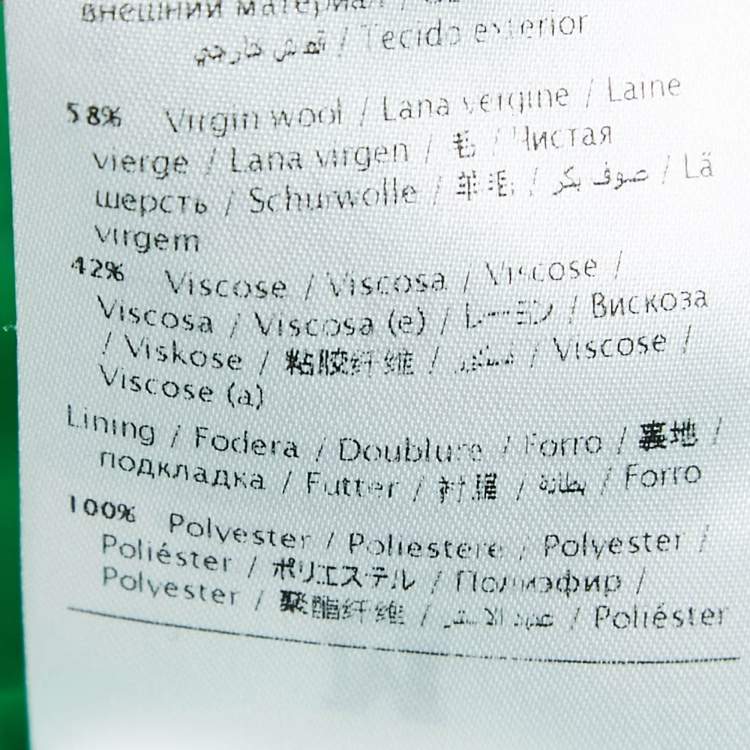 внешний материал /
قماش خارجي / Tecido exterior
58% Virgin wool / Lana vergine / Laine
vierge / Lana virgen / 毛 / Чистая
шерсть / Schurwolle / 羊毛 / صوف بكر / Lã
virgem
42% Viscose / Viscosa / Viscose /
Viscosa / Viscosa (e) / レーヨン / Вискоза
/ Viskose / 粘胶纤维 / فسكوز / Viscose /
Viscose (a)
Lining / Fodera / Doublure / Forro / 裏地 /
подкладка / Futter / 衬里 / بطانة / Forro
100% Polyester / Poliestere / Polyester /
Poliéster / ポリエステル / Полиэфир /
Polyester / 聚酯纤维 / / Poliéster